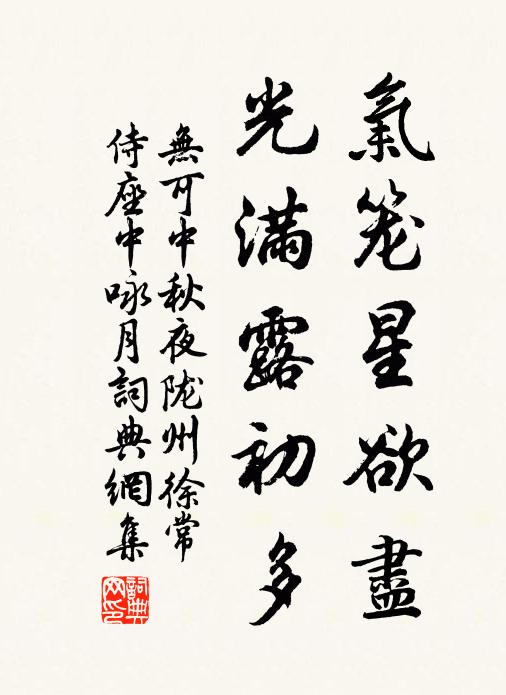 氣笼星欲盡
光滿露初多
無可中秋夜陇州徐常
侍座中咏月詞典網集
詞典網印